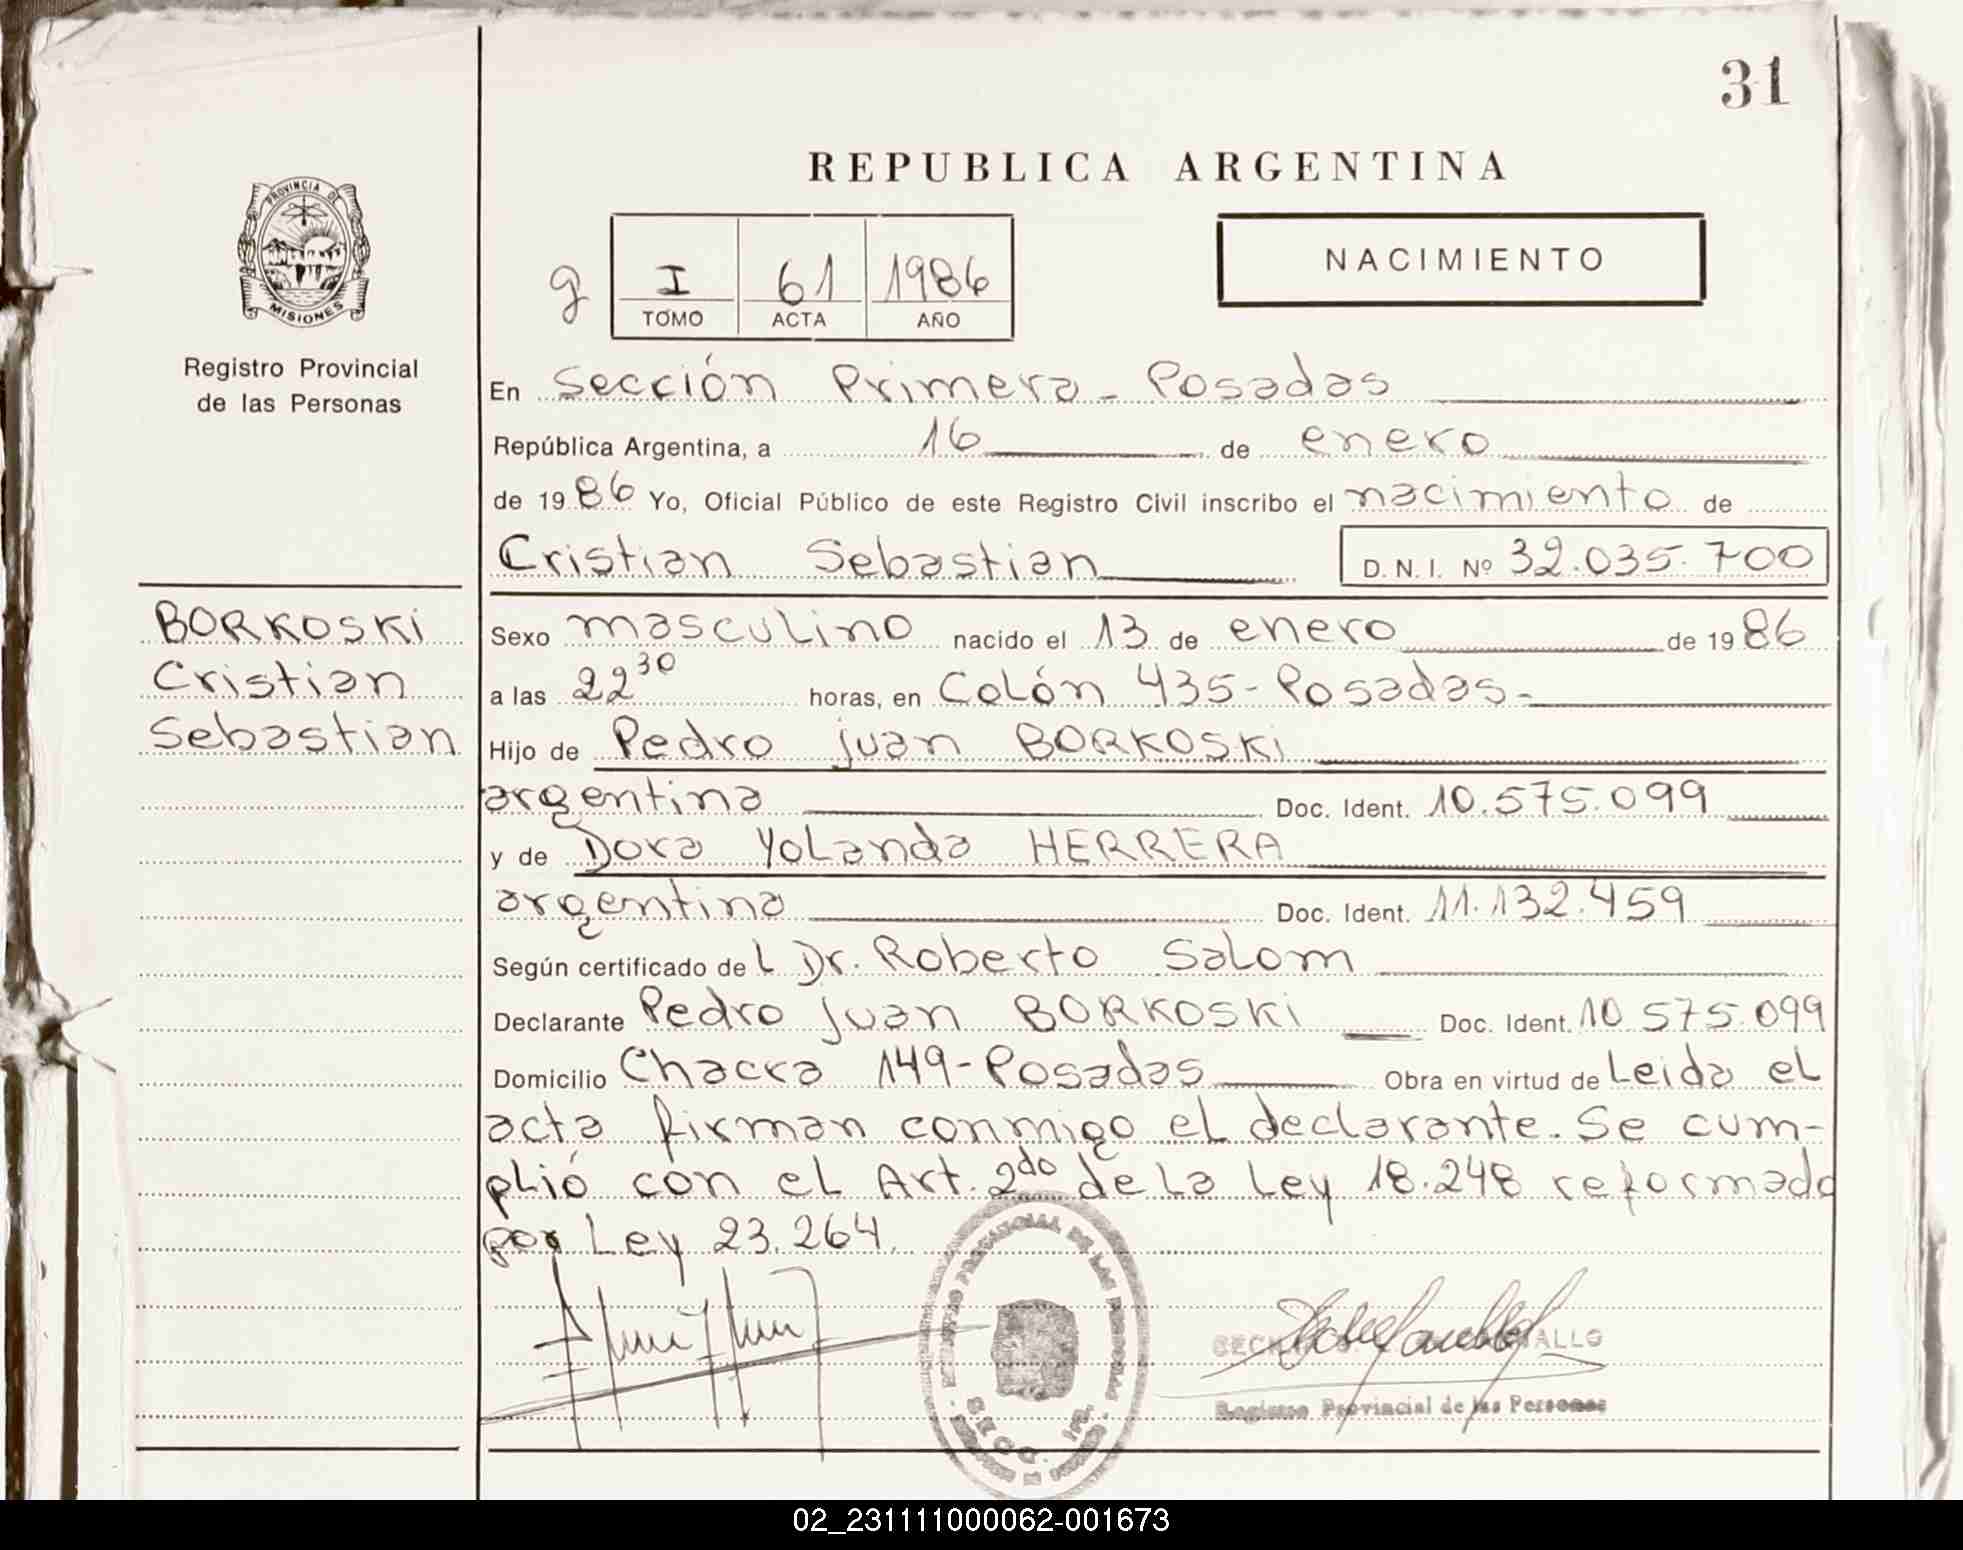 31
REPUBLICA ARGENTINA
PROVINCIA DE
MISIONES
Registro Provincial
de las Personas
g
I 61 1986
TOMO ACTA AÑO
NACIMIENTO
En Sección Primera - Posadas
República Argentina, a 16 de enero
de 1986 Yo, Oficial Público de este Registro Civil inscribo el nacimiento de
Cristian Sebastian D.N.I. Nº 32.035.700
BORKOSKi
Cristian
Sebastian
Sexo masculino nacido el 13 de enero de 1986
a las 22 30 horas, en Colón 435 - Posadas -
Hijo de Pedro Juan BORKOSKi
argentina Doc. Ident. 10.575.099
y de Dora Yolanda HERRERA
argentina Doc. Ident. 11.132.459
Según certificado del Dr. Roberto Salom
Declarante Pedro Juan BORKOSKi Doc. Ident. 10 575.099
Domicilio Chacra 149 - Posadas Obra en virtud de Leida el
acta firman conmigo el declarante. Se cum-
plió con el Art. 2do de la Ley 18.248 reformado
por Ley 23.264.
REGISTRO PROVINCIAL DE LAS PERSONAS
SECC.
Registro Provincial de las Personas
02_231111000062-001673